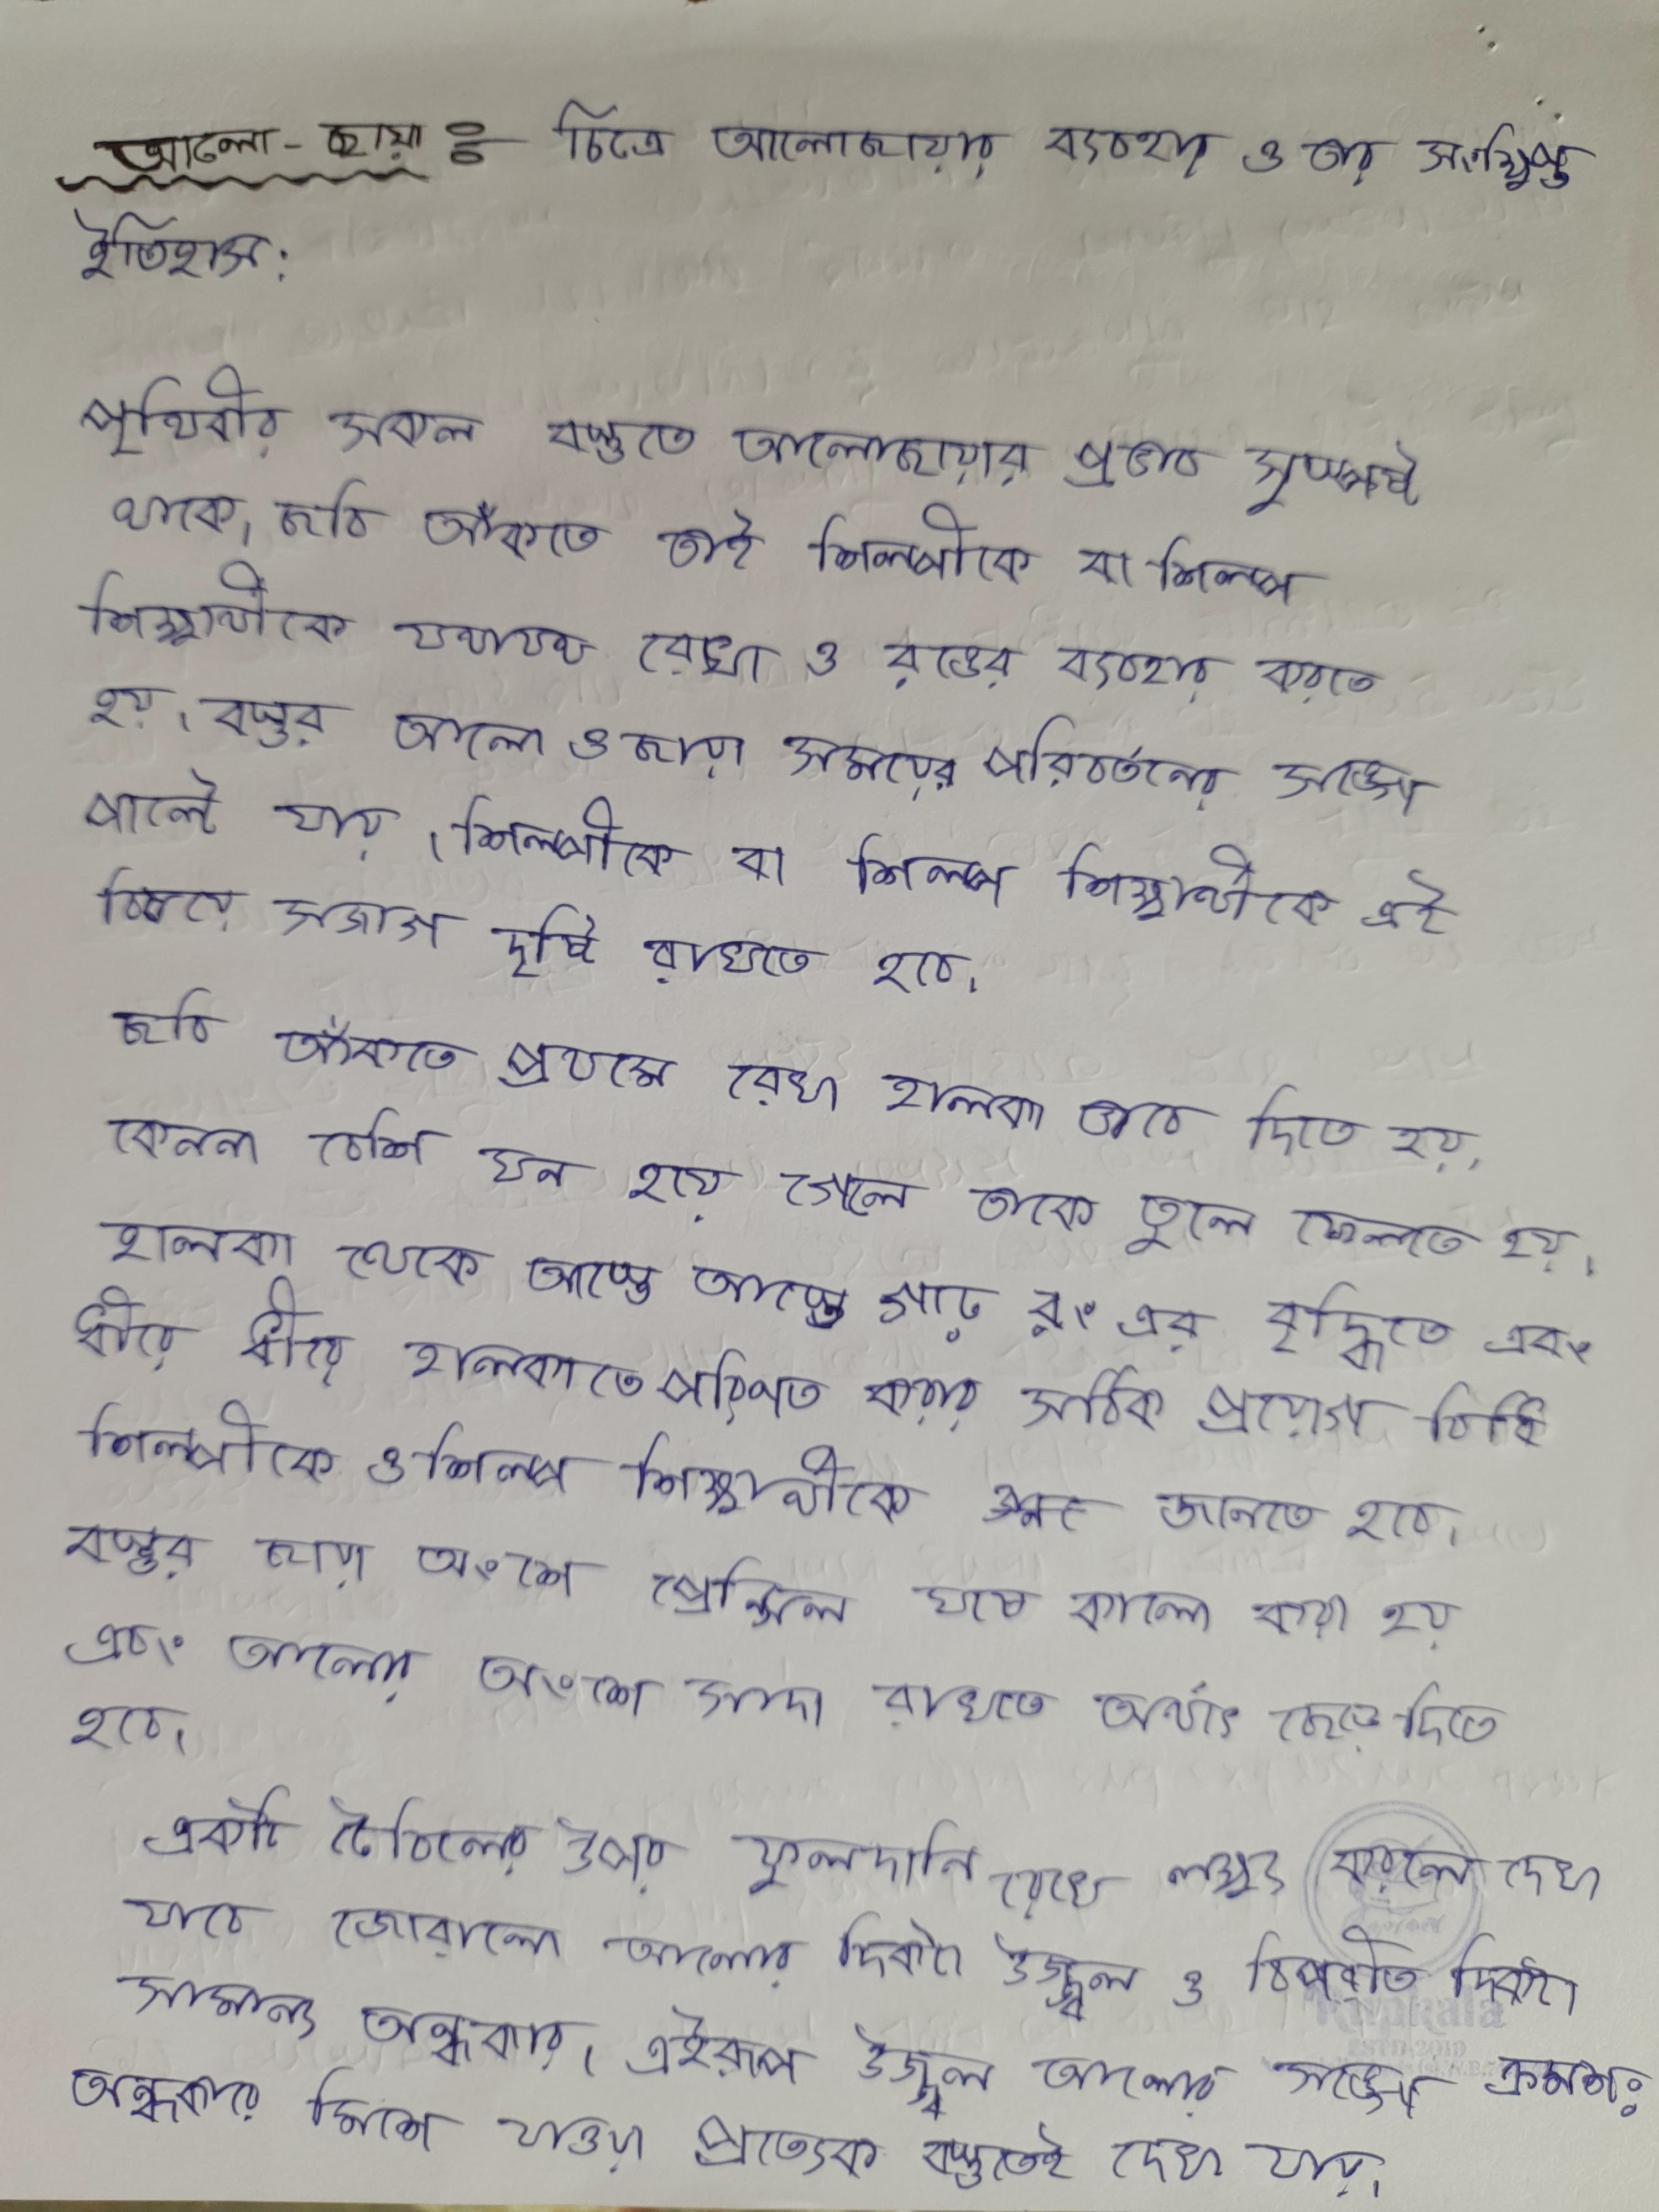 আলো - ছায়াঃ- চিত্রে আলোছায়ার ব্যবহার ও তার সংক্ষিপ্ত
ইতিহাস:
পৃথিবীর সকল বস্তুতে আলোছায়ার প্রভাব সুস্পষ্ট
থাকে। ছবি আঁকতে তাই শিল্পীকে বা শিল্প
শিক্ষার্থীকে যথাযথ রেখা ও রঙের ব্যবহার করতে
হয়। বস্তুর আলো ও ছায়া সময়ের পরিবর্তনের সঙ্গে
পাল্টে যায়। শিল্পীকে বা শিল্প শিক্ষার্থীকে এই
বিষয়ে সজাগ দৃষ্টি রাখতে হবে।
ছবি আঁকতে প্রথমে রেখা হালকা ভাবে দিতে হয়,
কেননা বেশি ঘন হয়ে গেলে তাকে তুলে ফেলতে হয়।
হালকা থেকে আস্তে আস্তে গাঢ় রং এর বৃদ্ধিতে এবং
ধীরে ধীরে হালকাতে পরিণত করার সঠিক প্রয়োগ বিধি
শিল্পীকে ও শিল্প শিক্ষার্থীকে জানতে হবে।
বস্তুর ছায়া অংশে প্রেন্সিল ঘষে কালো করা হয়
এবং আলোর অংশে সাদা রাখতে অর্থাৎ ছেড়ে দিতে
হবে।
একটি টেবিলের উপর ফুলদানি রেখে লক্ষ্য করলে দেখা
যাবে জোরালো আলোর দিকটা উজ্জ্বল ও বিপরীত দিকটা
সামান্য অন্ধকার। এইরূপ উজ্জ্বল আলোর সঙ্গে ক্রমশঃ
অন্ধকারে মিশে যাওয়া প্রত্যেক বস্তুতেই দেখা যায়।
Rupkala
ESTD 2019